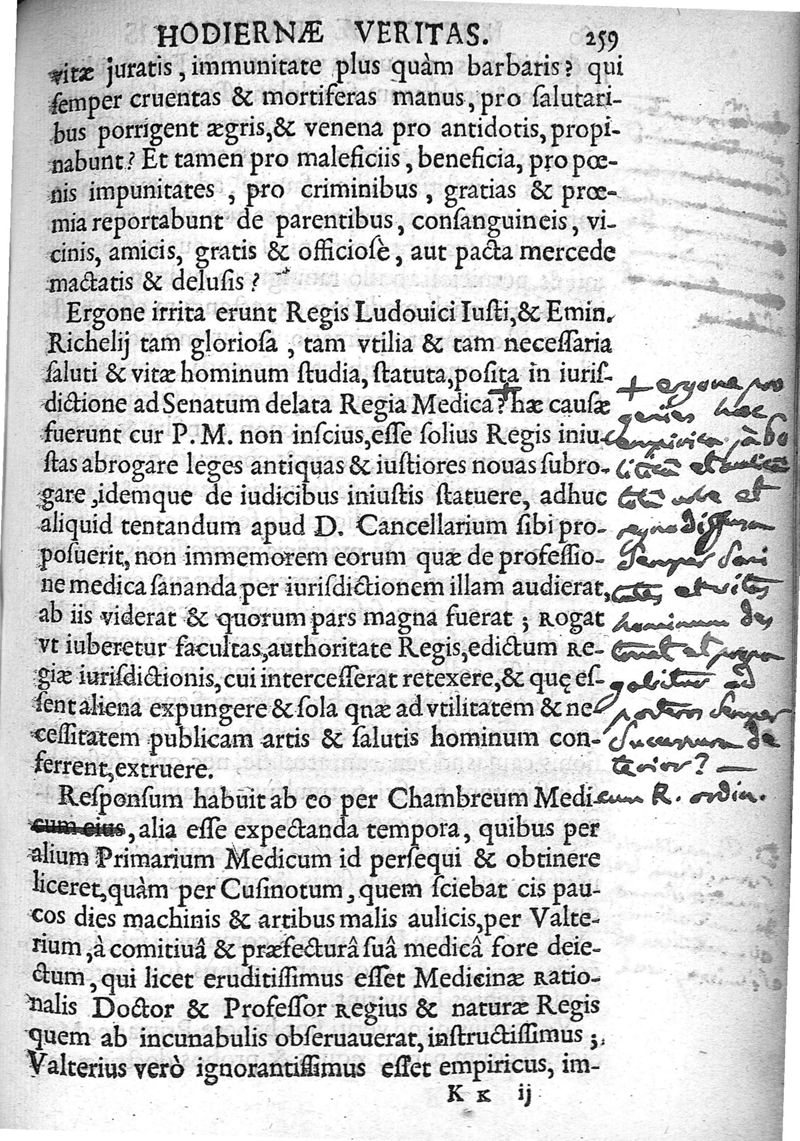 HODIERNÆ VERITAS. 259
vitæ juratis, immunitate plus quàm barbaris? qui
ſemper cruentas & mortiferas manus, pro ſalutari-
bus porrigent ægris, & venena pro antidotis, propi-
nabunt? Et tamen pro maleficiis, beneficia, pro pœ-
nis impunitates, pro criminibus, gratias & prœ-
mia reportabunt de parentibus, conſanguineis, vi-
cinis, amicis, gratis & officioſè, aut pacta mercede
mactatis & deluſis?
Ergone irrita erunt Regis Ludouici Iuſti, & Emin.
Richelij tam glorioſa, tam vtilia & tam neceſſaria
ſaluti & vitæ hominum ſtudia, ſtatuta, poſita in iuriſ-
dictione ad Senatum delata Regia Medica? + hæ cauſæ
fuerunt cur P. M. non inſcius, eſſe ſolius Regis iniu-
ſtas abrogare leges antiquas & iuſtiores nouas ſubro-
gare, idemque de iudicibus iniuſtis ſtatuere, adhuc
aliquid tentandum apud D. Cancellarium ſibi pro-
poſuerit, non immemorem eorum quæ de profeſſio-
ne medica ſananda per iuriſdictionem illam audierat,
ab iis viderat & quorum pars magna fuerat; Rogat
vt iuberetur facultas, authoritate Regis, edictum Re-
giæ iuriſdictionis, cui interceſſerat retexere, & quę eſ-
ſent aliena expungere & ſola qnæ ad vtilitatem & ne-
ceſſitatem publicam artis & ſalutis hominum con-
ferrent, extruere.
+ ergone pro
genies hæc
empirica
et
urbe et
regno diffusa
semper
et vitæ
hominum
et
ad
posteros semper
successura de
terior?
Reſponſum habuit ab eo per Chambreum Medi cum R. ordin.
cum eius, alia eſſe expectanda tempora, quibus per
alium Primarium Medicum id perſequi & obtinere
liceret, quàm per Cuſinotum, quem ſciebat cis pau-
cos dies machinis & artibus malis aulicis, per Valte-
rium, à comitiuâ & præfecturâ ſuâ medicâ fore deie-
ctum, qui licet eruditiſſimus eſſet Medicinæ Ratio-
nalis Doctor & Profeſſor Regius & naturæ Regis
quem ab incunabulis obſeruauerat, inſtructiſſimus;
Valterius verò ignorantiſſimus eſſet empiricus, im-
K k ij